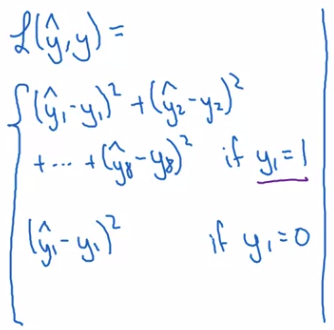 ℒ(ŷ,y) =
{ (ŷ₁-y₁)² + (ŷ₂-y₂)²
+ ... + (ŷ₈-y₈)² if y₁=1
(ŷ₁-y₁)² if y₁=0